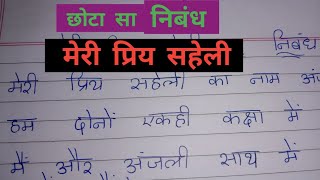 छोटा सा निबंध
मेरी प्रिय सहेली
निबंध
मेरी प्रिय सहेली का नाम
हम दोनों एकही कक्षा में
मैं और अंजली साथ में